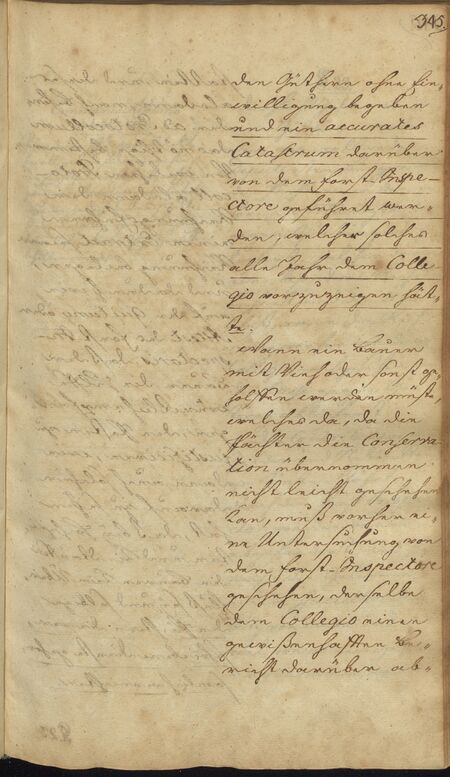 345.
den Güthern ohne Ein-
willigung begeben
und ein accurates
Catastrum darüber
von dem Forst-Inspe-
ctore geführet wer-
den, welcher solches
alle Jahr dem Colle-
gio vorzuzeigen hät-
te.
Wann ein Bauer
mit Vieh oder sonst ge-
holffen werden müste,
welches da, da die
Pächter die Conserva-
tion übernommen
nicht leicht geschehen
kan, muß vorher ei-
ne Untersuchung von
dem Forst-Inspectore
geschehen, derselbe
dem Collegio einen
gewißenhafften Be-
richt darüber ab-